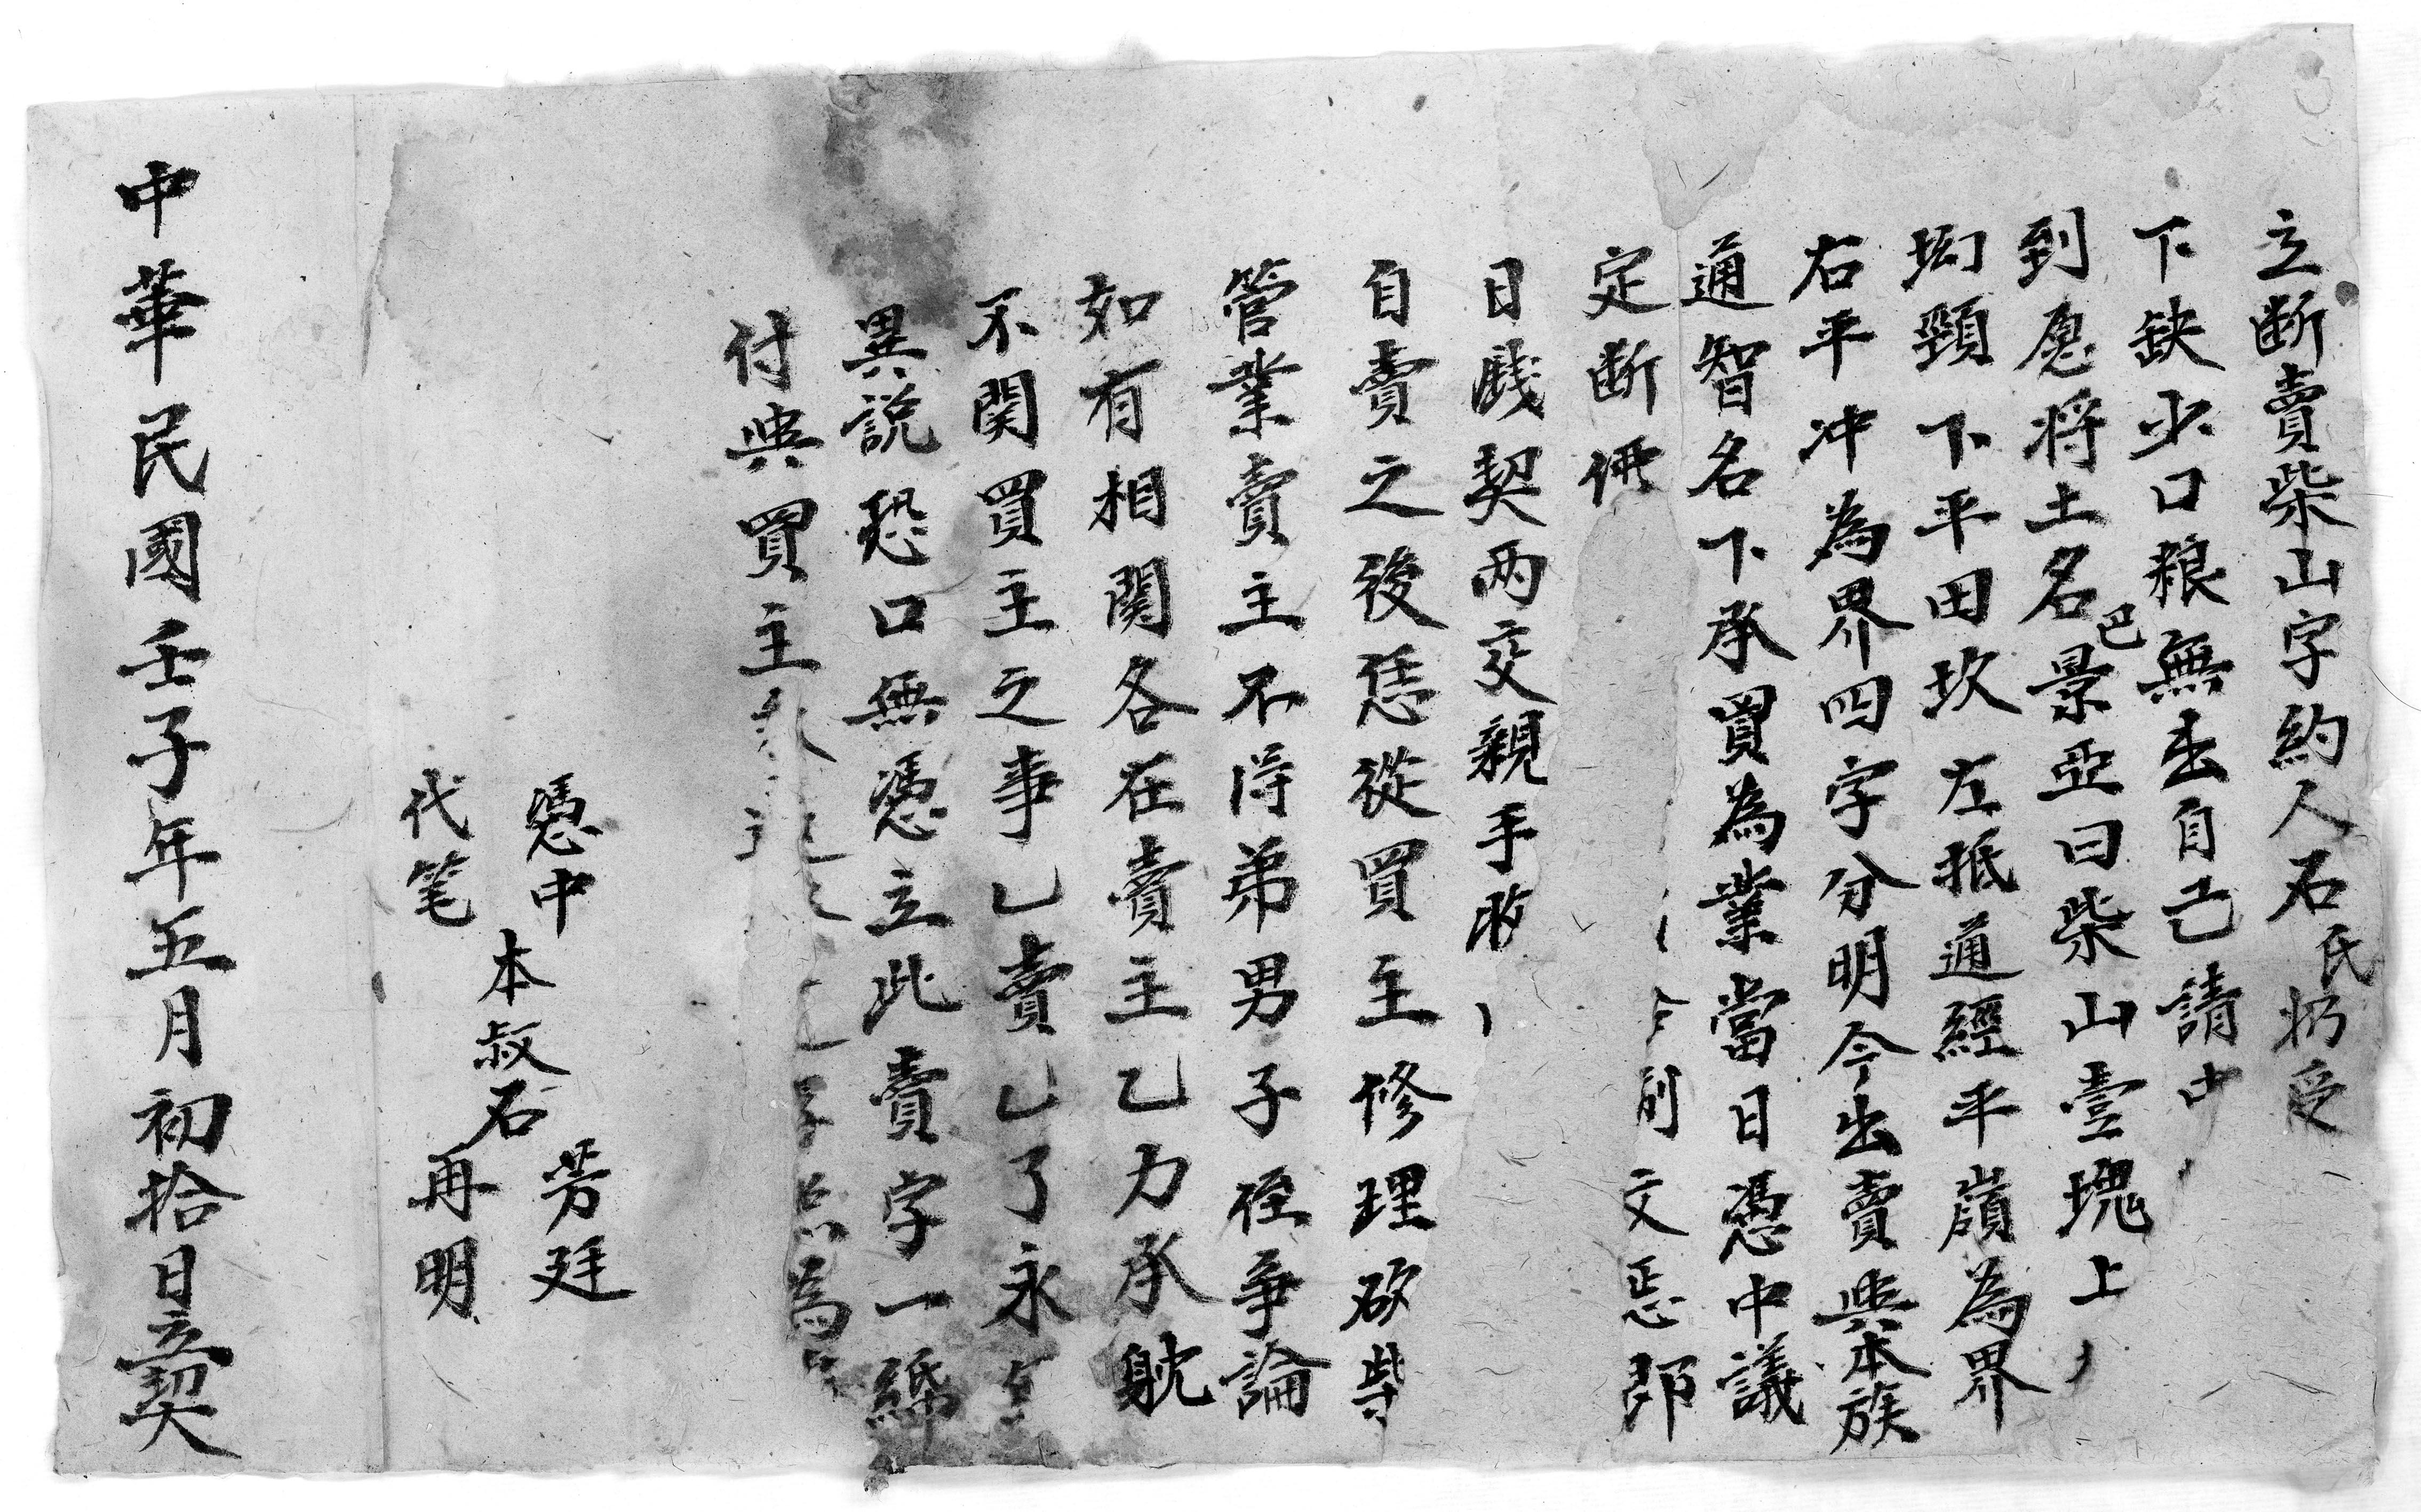 立断賣柴山字約人石氏扔受
下缺少口粮無出自己請中
到愿将土名巴景亞曰柴山壹塊上
坳頸下平田坎左抵通經平嶺為界
右平冲為界四字分明今出賣與本族
通智名下承買為業當日憑中議
定断 文 即
日戲契两交親手收
自賣之後恁從買主修理砍柴
管業賣主不得弟男子侄争論
如有相関各在賣主乙力承躭
不関買主之事乚賣乚了永
異說恐口無憑立此賣字一綿
付與買主 為
憑中 本叔石 芳廷
代笔 再明
中華民國壬子年五月初拾日立契